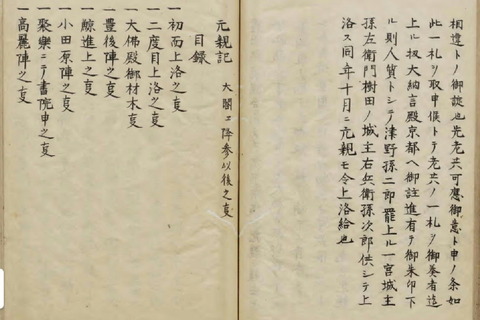 相違トノ御談也先老共可應御意ト申ノ条如
此一札ヲ取申候トテ老共ノ一札ヲ御奏者迄
上ル扨大納言殿京都ヘ御註進有テ御朱印下
ル則人質トシテ津野孫二郎罷上ル一宮城主
孫左衛門樹田ノ城主右兵衛孫次郎供シテ上
洛ス同年十月ニ元親モ令上洛給也
元親記 大閤エ降参以後之叓
目録
一初而上洛之叓
一二度目上洛之叓
一大佛殿御材木叓
一豊後陣之叓
一鯨進上之叓
一小田原陣之叓
一聚樂ニテ書院申之叓
一高麗陣之叓